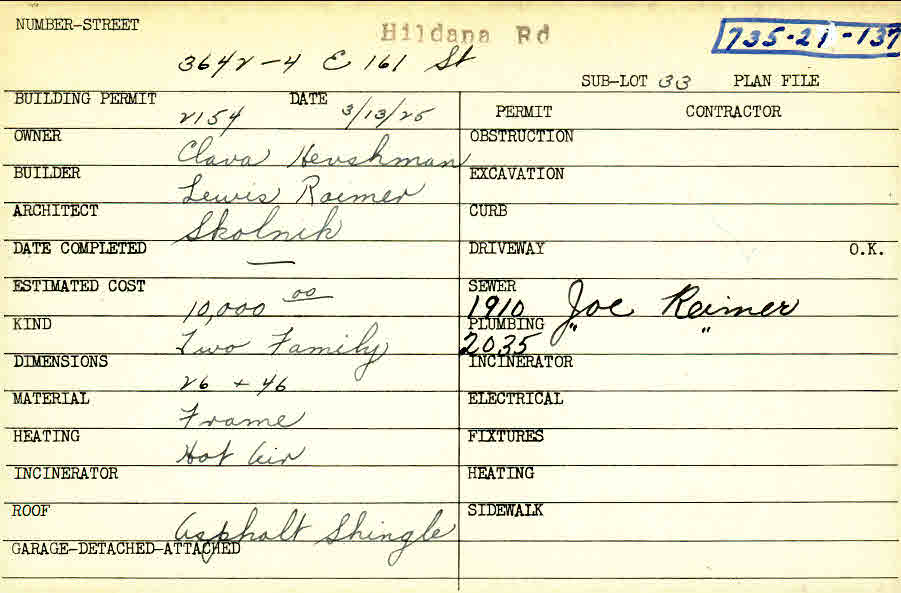 NUMBER-STREET
Hildana Rd
735-21-137
3642-4 E 161 St
SUB-LOT 33 PLAN FILE
BUILDING PERMIT 2154 DATE 3/13/25
PERMIT CONTRACTOR
OWNER Clara Hershman
OBSTRUCTION
BUILDER Lewis Raimer
EXCAVATION
ARCHITECT Skolnik
CURB
DATE COMPLETED —
DRIVEWAY O.K.
ESTIMATED COST 10,000 00
SEWER 1910 Joe Reimer
KIND Two Family
PLUMBING 2035 " "
DIMENSIONS 26 + 46
INCINERATOR
MATERIAL Frame
ELECTRICAL
HEATING Hot Air
FIXTURES
INCINERATOR
HEATING
ROOF Asphalt Shingle
SIDEWALK
GARAGE-DETACHED-ATTACHED